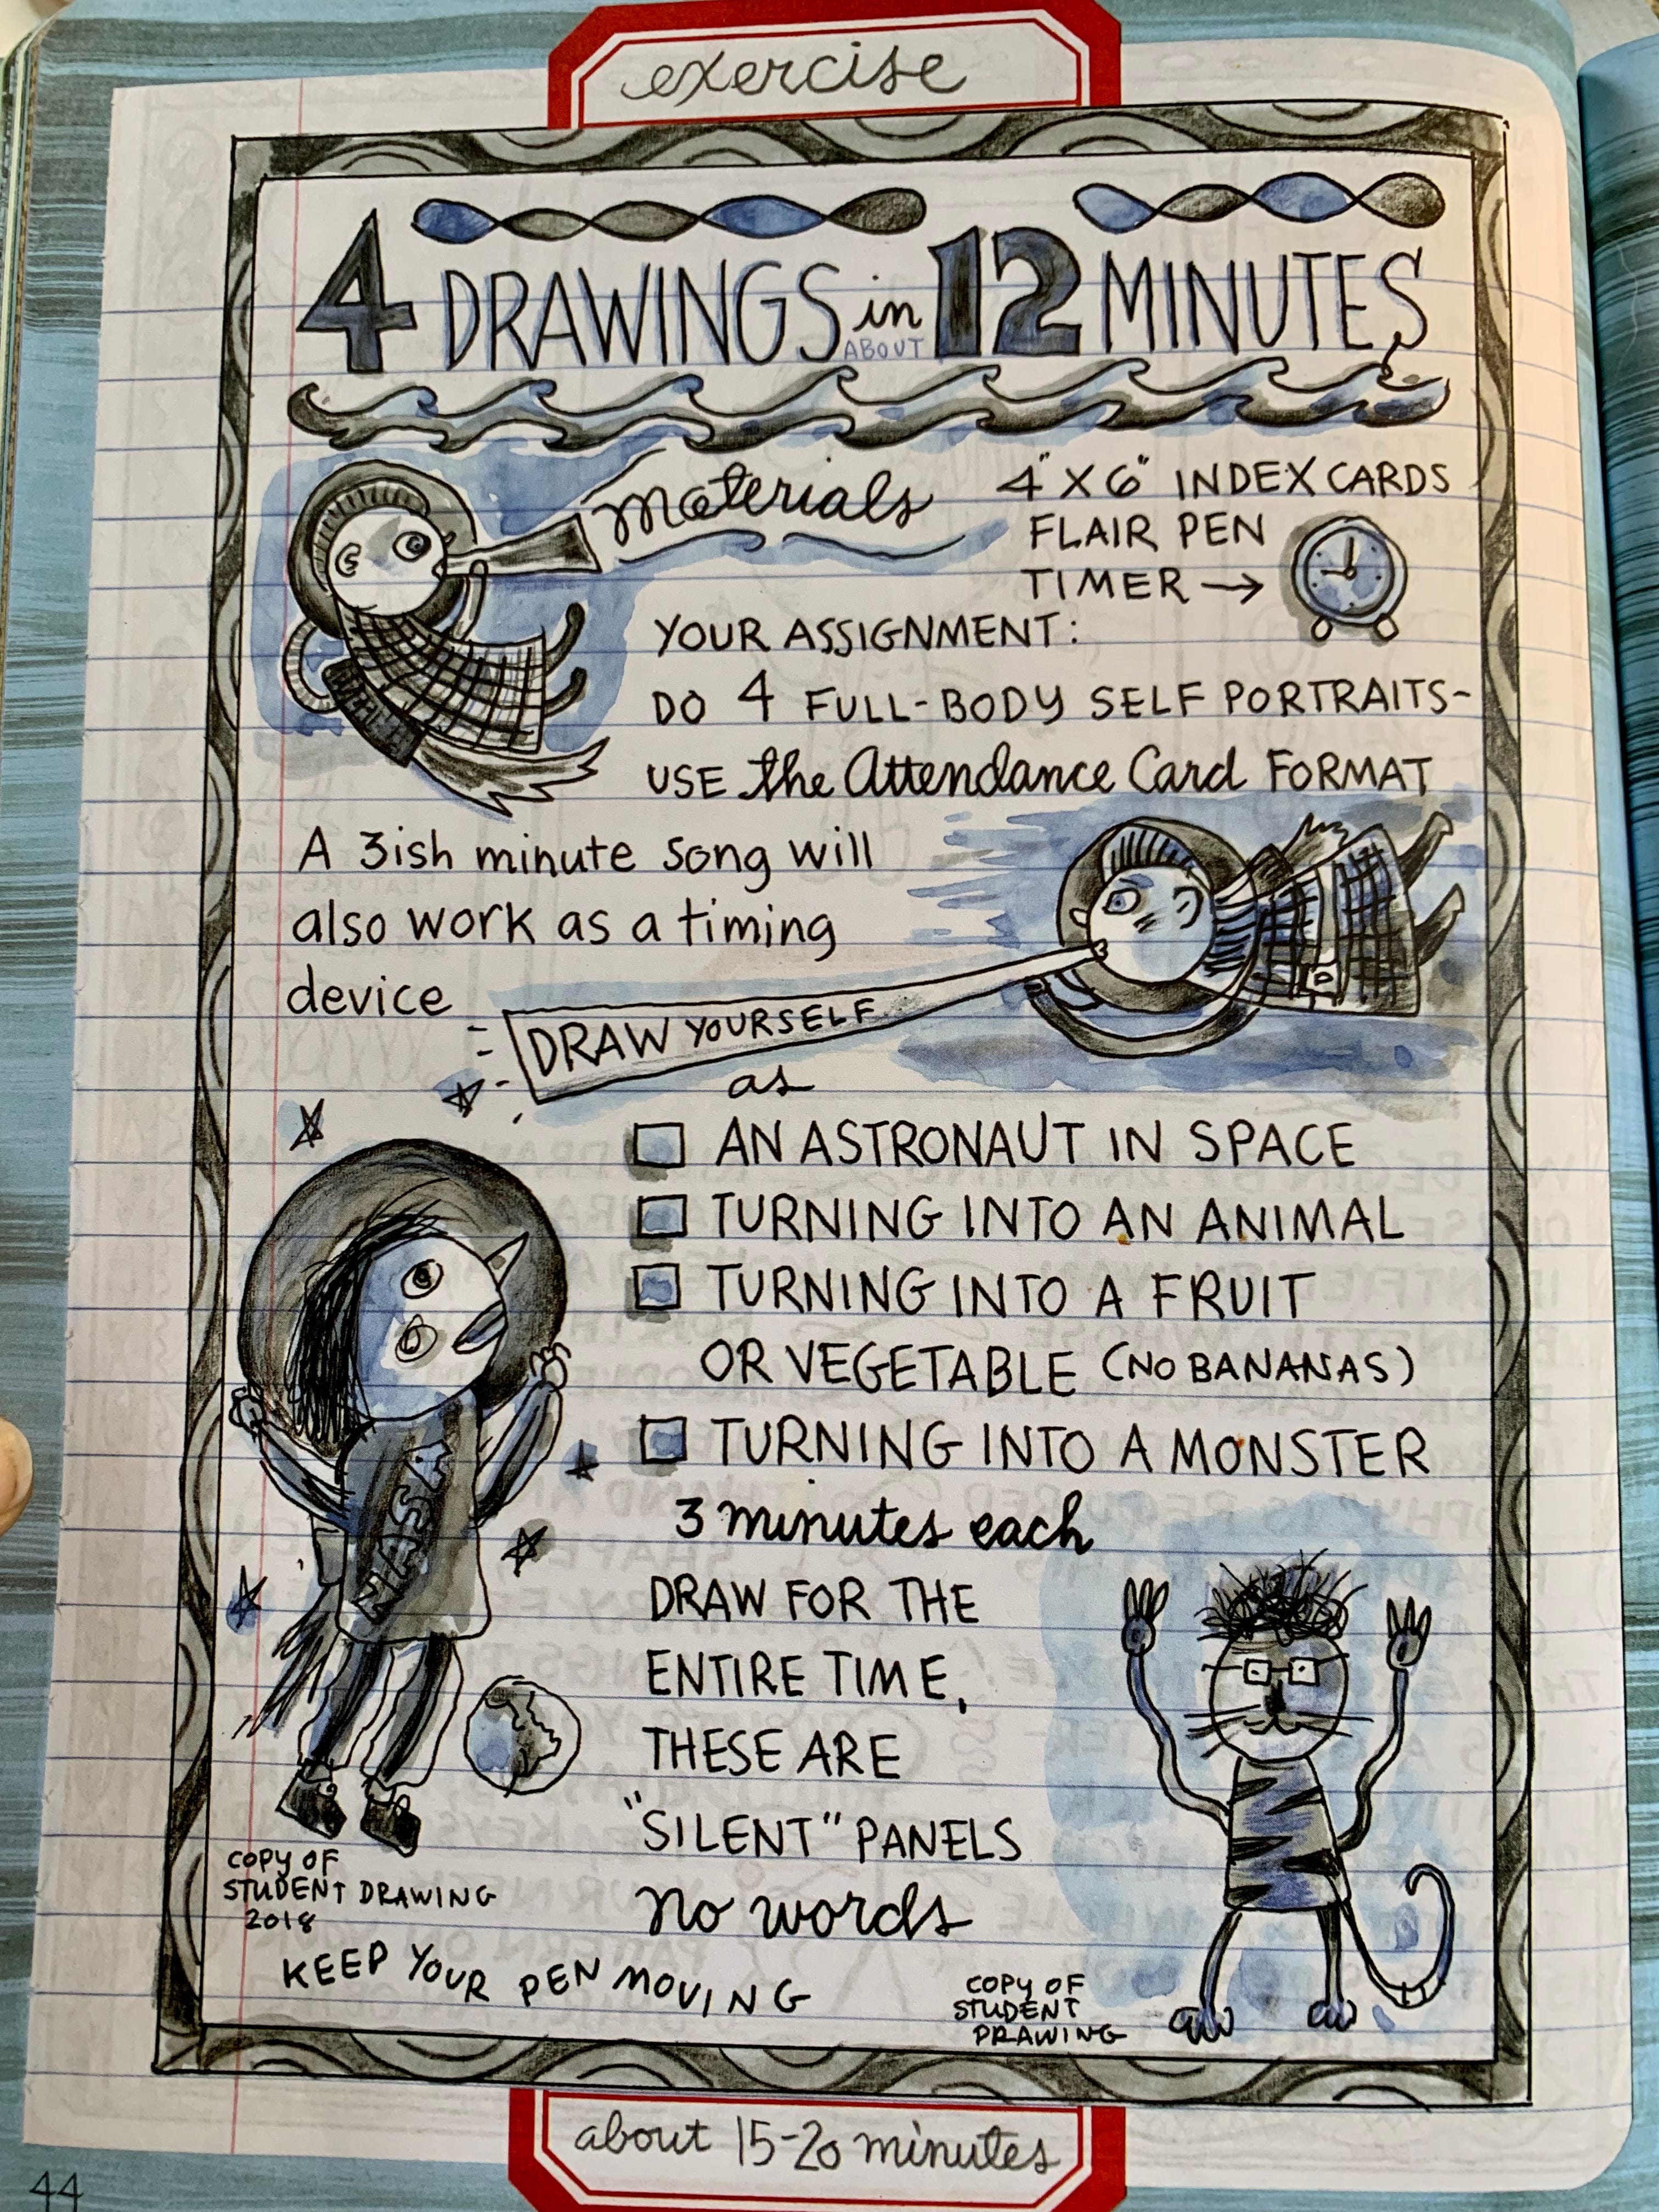 exercise
4 DRAWINGS in ABOUT 12 MINUTES
materials
4" X 6" INDEX CARDS
FLAIR PEN
TIMER →
YOUR ASSIGNMENT:
DO 4 FULL-BODY SELF PORTRAITS-
USE the Attendance Card FORMAT
A 3ish minute song will
also work as a timing
device
DRAW YOURSELF
as
AN ASTRONAUT IN SPACE
TURNING INTO AN ANIMAL
TURNING INTO A FRUIT
OR VEGETABLE (NO BANANAS)
TURNING INTO A MONSTER
3 minutes each
DRAW FOR THE
ENTIRE TIME,
THESE ARE
"SILENT" PANELS
no words
NASA
COPY OF
STUDENT DRAWING
2018
KEEP YOUR PEN MOVING
COPY OF
STUDENT
DRAWING
about 15-20 minutes
44